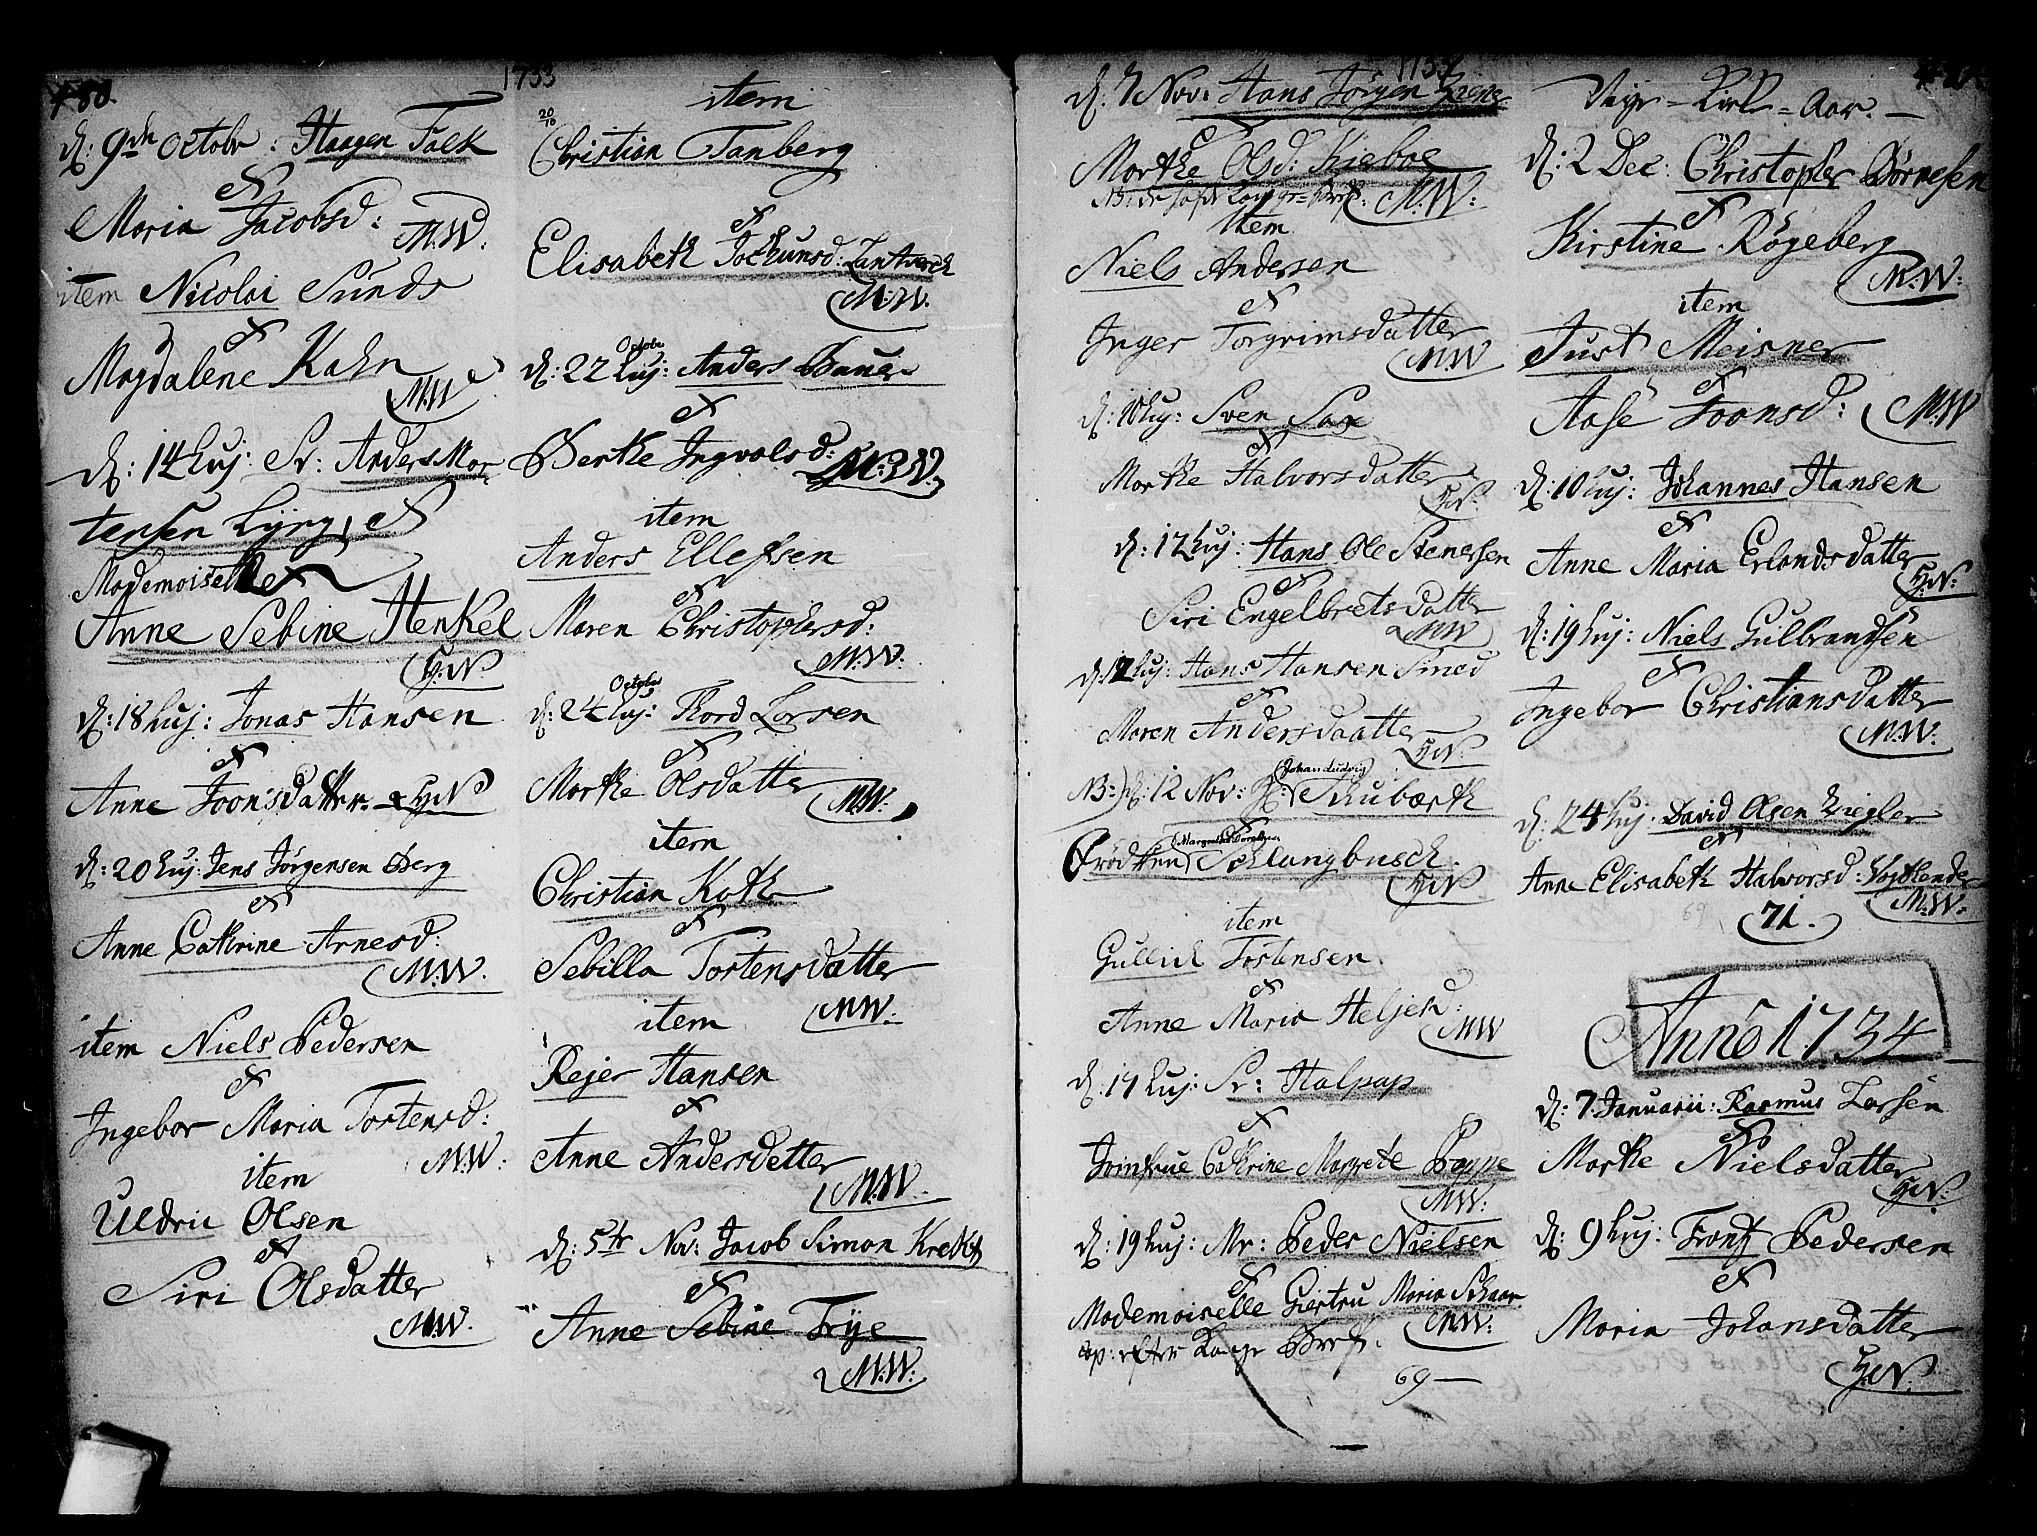 480.
1733
d: 9de Octobr: Haagen Falk
&
Maria Jacobsd: M.W.
item Nicolai Sunds
&
Magdalene Kahn
M.W
d: 14 huj: Sr: Anders Mor
tensen Lyng, &
Mademoiselle
Anne Sebine Henkel
H.N
d: 18 huj: Jonas Hansen
&
Anne Joonsdatter H.N
d: 20 huj: Jens Jörgensen Berg
&
Anne Cathrine Arnesd:
M.W.
item Niels Pedersen
&
Ingebor Maria Tostensd:
M.W:
item
Uldric Olsen
&
Siri Olsdatter
M.W.
item
20/10
Christian Tanberg
&
Elisabeth Jochumsd: Lantwerck
M.W.
Octobr
d: 22 huj: Anders
&
Berthe Ingvolsd: M:W.
item
Anders Ellefsen
&
Maren Christophersd:
M.W:
Octobr
d: 24 huj: Thord Larsen
&
Marthe Olsdatter
M.W:
item
Christian Koth
&
Sebilla Tostensdatter
M.W:
item
Rejer Hansen
&
Anne Andersdatter
M.W.
d: 5tr Nov: Jacob Simon Krefft
&
Anne Sebine Frye
M.W:
1733
d: 7 Nov: Hans Jörgen
&
Marthe Olsd: Kieboe
M.W:
item
Niels Andersen
&
Inger Torgrimsdatter
M.W
d: 10 huj: Sven Sax
&
Marthe Halvorsdatter
H.N.
d: 12 huj: Hans Ole Stenersen
&
Siri Engelbretsdatter
M.W
d: 12 huj: Hans Hansen Smed
&
Maren Andersdaatter
H.N
NB: d: 12 Nov: Hr: (Johan Ludvig) Schubærth
&
Frödken (Margretha Dorothea) Schlungbusch.
H.N
item
Gullich Tostensen.
&
Anne Maria Heljesd:
M.W
d: 14 huj: Sr: Halpap
&
Jomfrue Cathrine Margrete Poppe
M.W:
d: 19 huj: Mr: Peder Nielsen
&
Mademoiselle Giertru Maria Schaar
cop: efter Konge Bref. M.W:
69 —
Nye = Kirk = Aar. —
d: 2 Dec: Christopher Börnesen
&
Kirstine Rögeberg
M.W:
item
Just Meisner
&
Aase Joonsd: M.W
d: 10 huj: Johannes Hansen
&
Anne Maria Erlandsdatter
H.N:
d: 19 huj: Niels Gulbrandsen
&
Ingebor Christiansdatter
M.W:
d: 24 huj: David Olsen Ziegler
&
Anne Elisabeth Halvorsd: Voytlender
M.W:
69
71.
Anno 1734
d: 7. Januarii: Rasmus Larsen
&
Marthe Nielsdatter
H.N:
d: 9 huj: Frantz Pedersen
&
Maria Johansdatter
H.N.